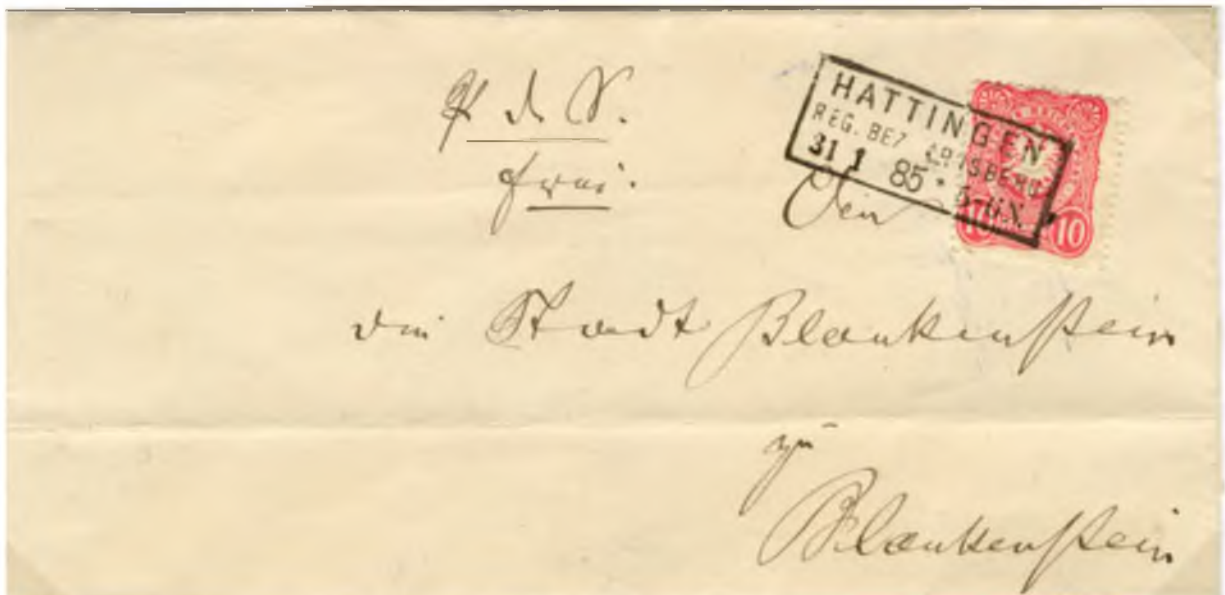 frei.
HATTINGEN
REG. BEZ ARNSBERG
31 1 85 * 5-6 N.
10 10
die Stadt Blankenstein
zu
Blankenstein